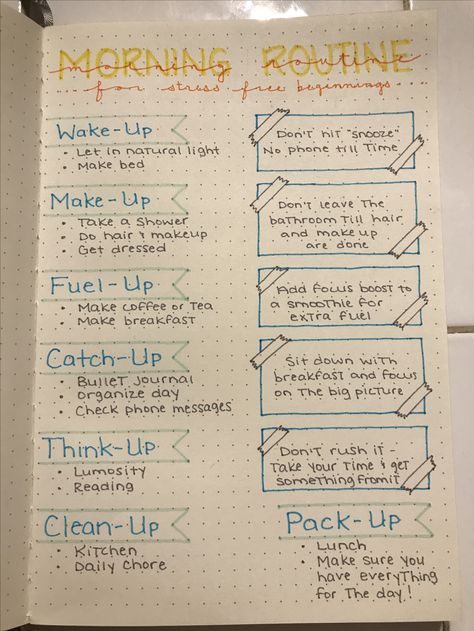 MORNING ROUTINE
morning routine
for stress free beginnings
Wake-Up
• Let in natural light
• Make bed
Don't hit "snooze"
No phone till Time
Make-Up
• Take a shower
• Do hair & makeup
• Get dressed
Don't leave the
bathroom till hair
and makeup
are done
Fuel-Up
• Make coffee or Tea
• Make breakfast
Add focus boost to
a smoothie for
extra fuel
Catch-Up
• Bullet Journal
• organize day
• Check phone messages
Sit down with
breakfast and focus
on The big picture
Think-Up
• Lumosity
• Reading
Don't rush it -
Take your Time & get
something from it
Clean-Up
• Kitchen
• Daily Chore
Pack-Up
• Lunch
• Make sure you
have everything
for The day!